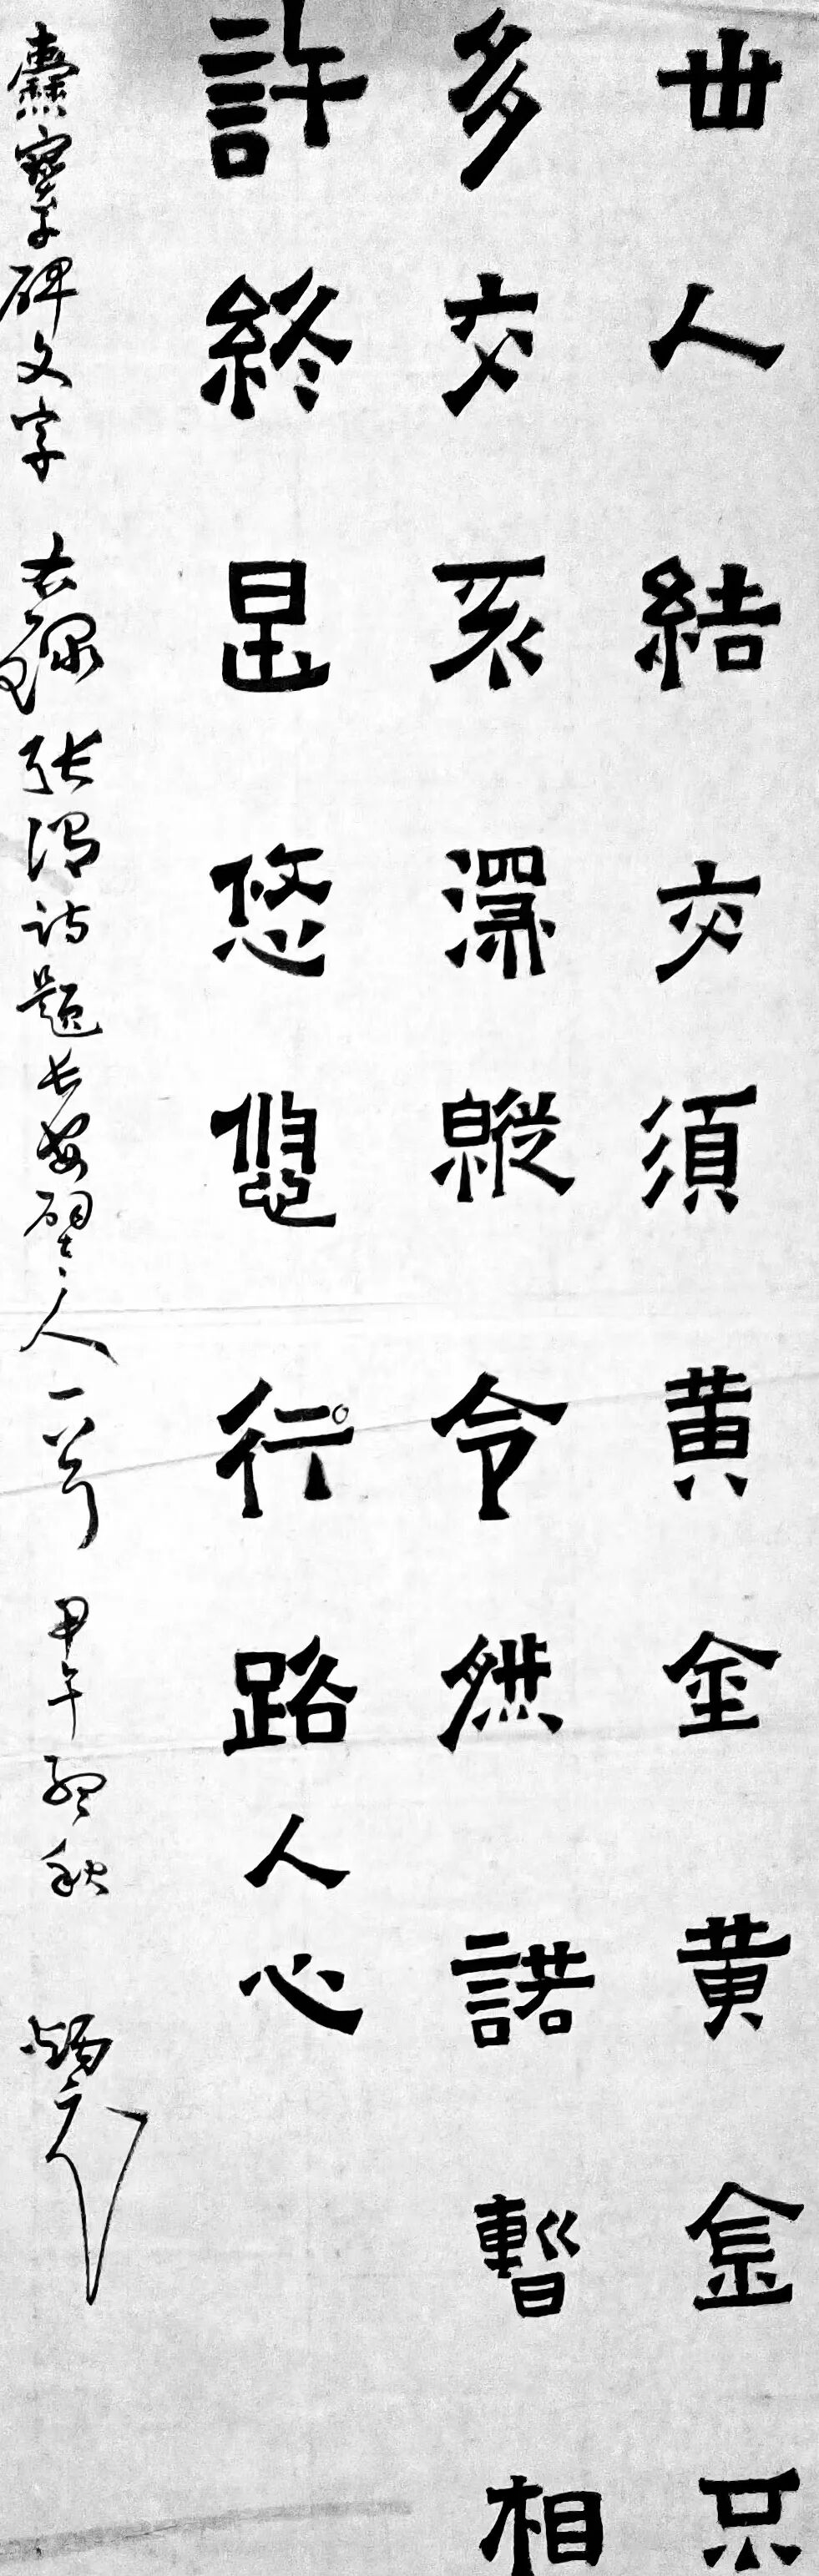 丗人結交須黄金黄金只
多交不深縱令然諾暫相
許終是悠悠行路人心
爨寶子碑文字 右録張謂诗題長安壁主人一首 甲午秋 炳